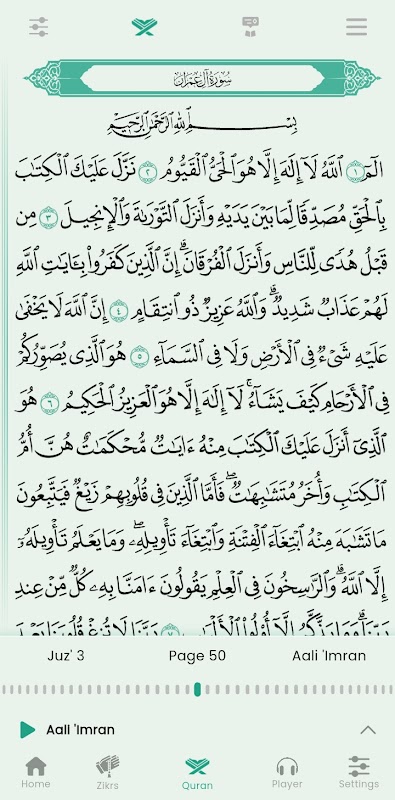 سُورَةُ آلِ عِمۡرَانَ
بِسۡمِ ٱللَّهِ ٱلرَّحۡمَٰنِ ٱلرَّحِيمِ
الٓمٓ ١ ٱللَّهُ لَآ إِلَٰهَ إِلَّا هُوَ ٱلۡحَيُّ ٱلۡقَيُّومُ ٢ نَزَّلَ عَلَيۡكَ ٱلۡكِتَٰبَ
بِٱلۡحَقِّ مُصَدِّقٗا لِّمَا بَيۡنَ يَدَيۡهِ وَأَنزَلَ ٱلتَّوۡرَىٰةَ وَٱلۡإِنجِيلَ ٣ مِن
قَبۡلُ هُدٗى لِّلنَّاسِ وَأَنزَلَ ٱلۡفُرۡقَانَۗ إِنَّ ٱلَّذِينَ كَفَرُواْ بِـَٔايَٰتِ ٱللَّهِ
لَهُمۡ عَذَابٞ شَدِيدٞۗ وَٱللَّهُ عَزِيزٞ ذُو ٱنتِقَامٍ ٤ إِنَّ ٱللَّهَ لَا يَخۡفَىٰ
عَلَيۡهِ شَيۡءٞ فِي ٱلۡأَرۡضِ وَلَا فِي ٱلسَّمَآءِ ٥ هُوَ ٱلَّذِي يُصَوِّرُكُمۡ
فِي ٱلۡأَرۡحَامِ كَيۡفَ يَشَآءُۚ لَآ إِلَٰهَ إِلَّا هُوَ ٱلۡعَزِيزُ ٱلۡحَكِيمُ ٦ هُوَ
ٱلَّذِيٓ أَنزَلَ عَلَيۡكَ ٱلۡكِتَٰبَ مِنۡهُ ءَايَٰتٞ مُّحۡكَمَٰتٌ هُنَّ أُمُّ
ٱلۡكِتَٰبِ وَأُخَرُ مُتَشَٰبِهَٰتٞۖ فَأَمَّا ٱلَّذِينَ فِي قُلُوبِهِمۡ زَيۡغٞ فَيَتَّبِعُونَ
مَا تَشَٰبَهَ مِنۡهُ ٱبۡتِغَآءَ ٱلۡفِتۡنَةِ وَٱبۡتِغَآءَ تَأۡوِيلِهِۦۖ وَمَا يَعۡلَمُ تَأۡوِيلَهُۥٓ
إِلَّا ٱللَّهُۗ وَٱلرَّٰسِخُونَ فِي ٱلۡعِلۡمِ يَقُولُونَ ءَامَنَّا بِهِۦ كُلّٞ مِّنۡ عِندِ
رَبِّنَاۗ وَمَا يَذَّكَّرُ إِلَّآ أُوْلُواْ ٱلۡأَلۡبَٰبِ ٧ رَبَّنَا لَا تُزِغۡ قُلُوبَنَا بَعۡدَ
Juz' 3 Page 50 Aali 'Imran
Aali 'Imran
Home Zikrs Quran Player Settings